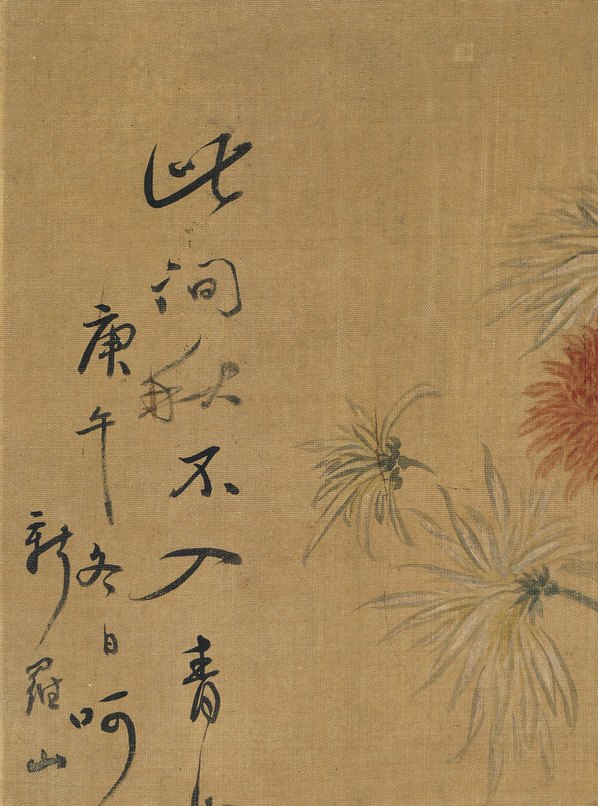 此間秋不入青
庚午冬日呵
新羅山